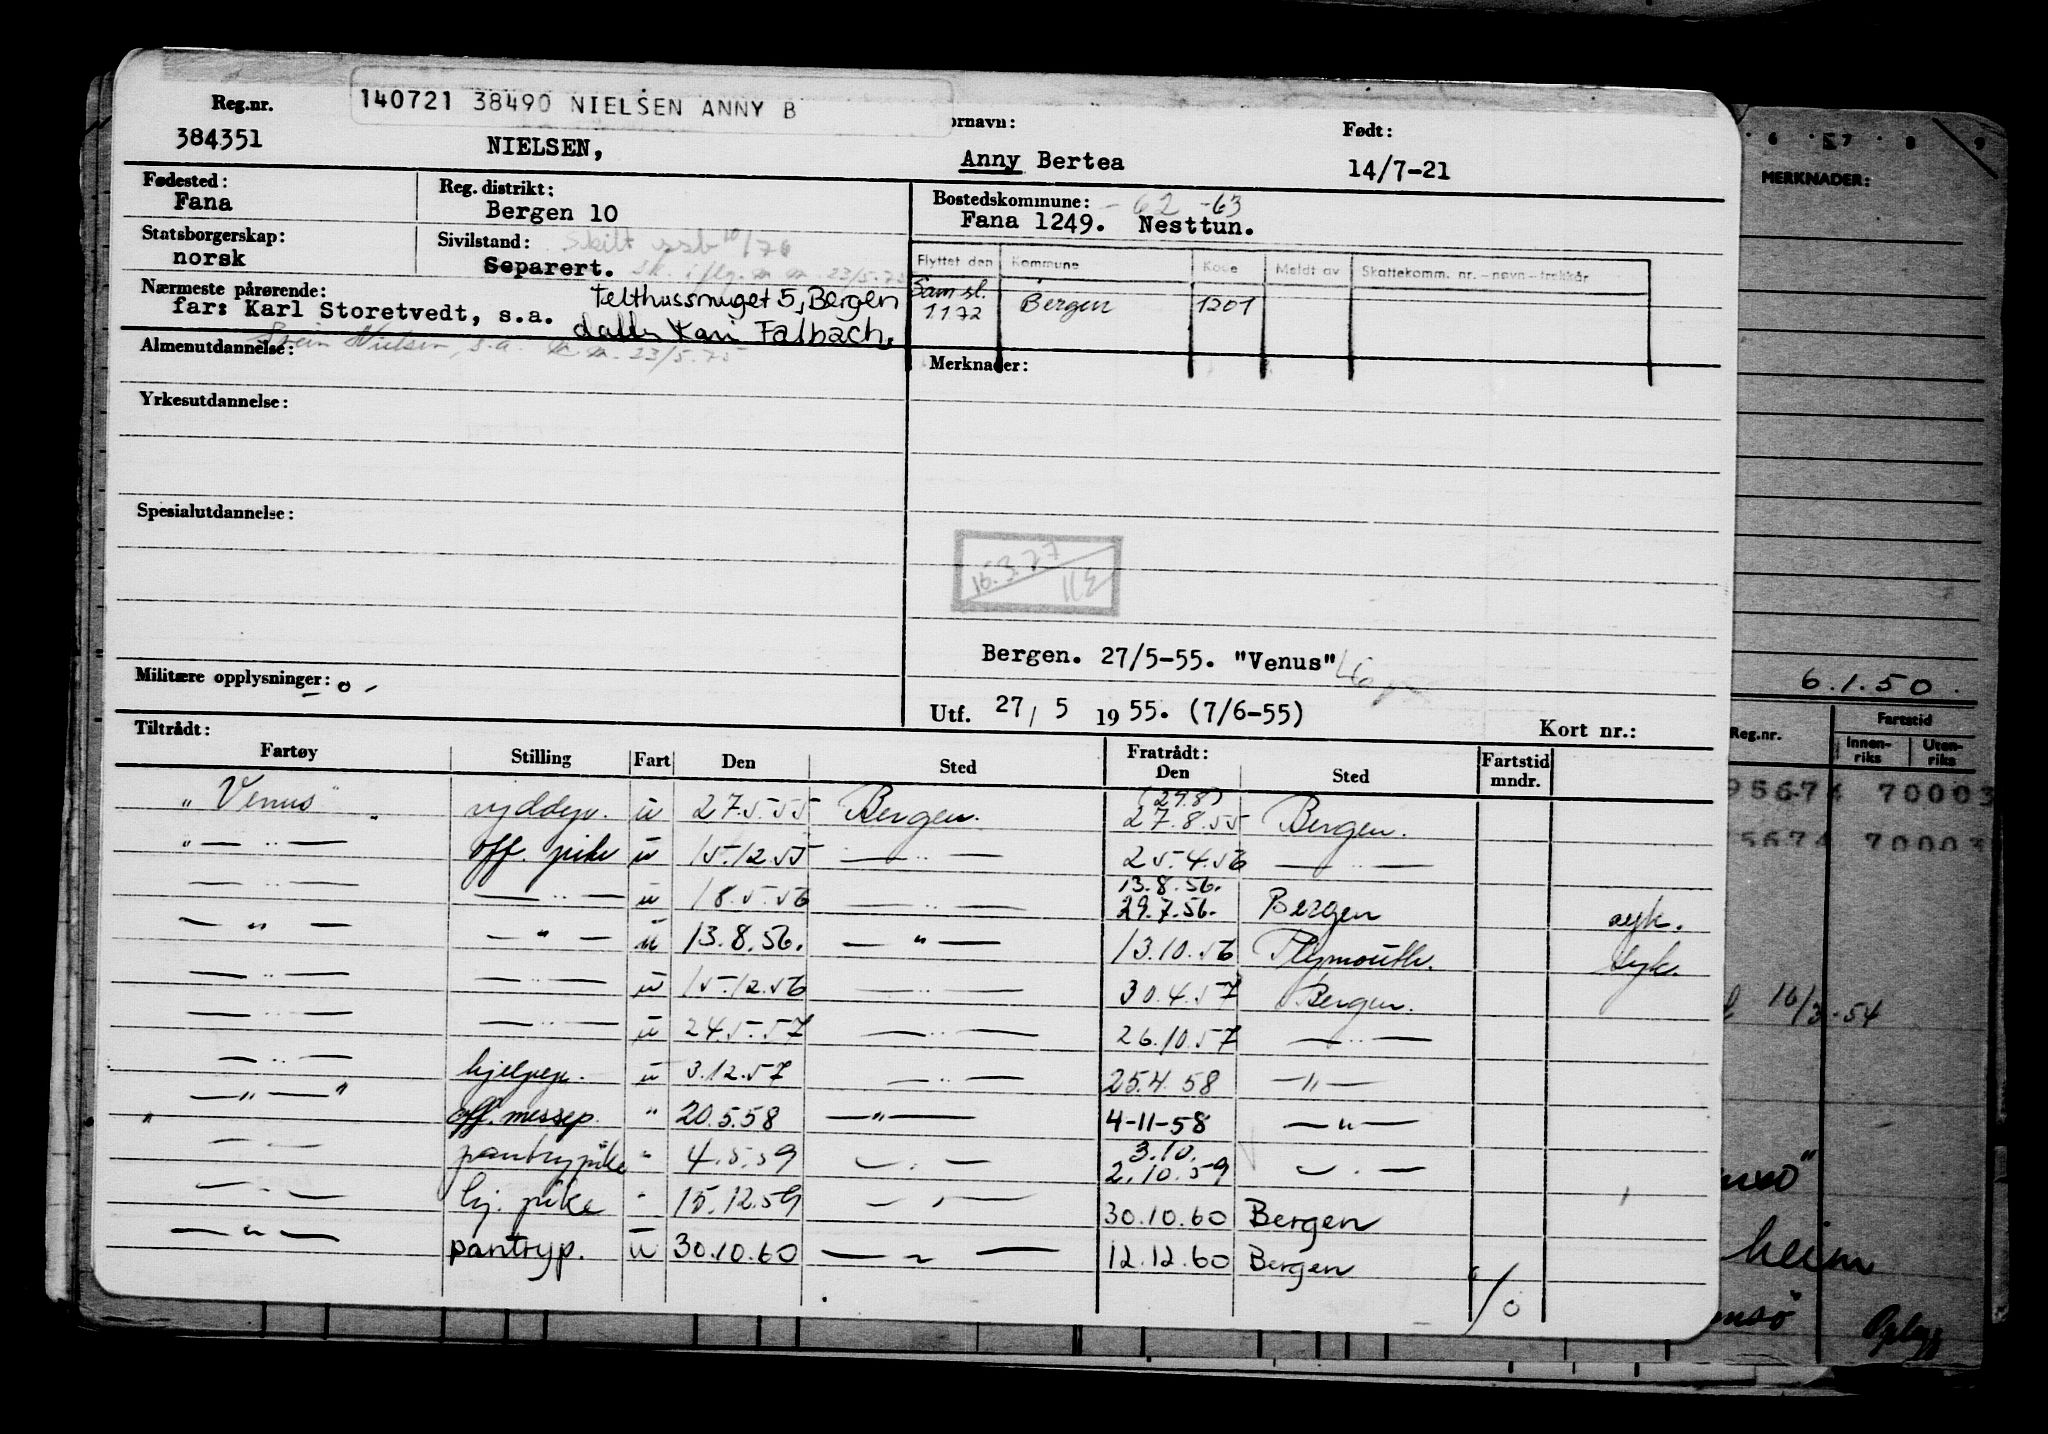 140721 38490 NIELSEN ANNY B
Reg.nr. ornavn: Født:
384351 NIELSEN, Anny Bertea 14/7-21
Fødested: Reg. distrikt: Bostedskommune: - 62 -63
Fana Bergen 10 Fana 1249. Nesttun.
Statsborgerskap: Sivilstand: Skilt ssb 10/76
norsk Separert. sk. iflg. m m. 23/5.75
Flyttet den Kommune Kode Meldt av Skattekomm. nr. - navn - trekkår
Sam sl. 1 1 72 Bergen 1201
Nærmeste pårørende: Telthussmuget 5, Bergen
far: Karl Storetvedt, s.a. datter Kari Falbach.
Stein Nielsen, s.a. m m. 23/5.75
Almenutdannelse: Merknader:
Yrkesutdannelse:
Spesialutdannelse:
16.3.77
Bergen. 27/5-55. "Venus"
Militære opplysninger: - 0 -
Utf. 27/ 5 1955. (7/6-55)
Tiltrådt: Kort nr.:
Fartøy Stilling Fart Den Sted Fratrådt: Den Sted Fartstid mndr.
"Venus" ryddep. u 27.5.55 Bergen. (29.8) 27.8.55 Bergen.
" — .. — off. pike u 15.12.55 — .. — 25.4.56 — .. —
— .. — — .. — u 18.5.56 — .. — 13.8.56. 29.7.56. Bergen syk.
— " — — " — u 13.8.56. — " — 13.10.56 Plymouth. syk.
— .. — — .. — u 15.12.56 — .. — 30.4.57 Bergen.
— .. — — .. — u 24.5.57 — .. — 26.10.57 — .. —
— .. — hjelpep. u 3.12.57 — .. — 25.4.58 — " —
" — " — " off. messep. " 20.5.58 — " — 4-11-58 — " —
— . — pantrypike " 4.5.59 — . — 3.10. 2.10.59 — . —
— . — hj. pike " 15.12.59 — , — 30.10.60 Bergen
— " — pantryp. u 30.10.60 — " — 12.12.60 Bergen
/ 0
6 57 8 9
MERKNADER:
6.1.50.
Reg.nr. Fartstid
Innen-riks Uten-riks
95674 70003
5674 70003
16/3-54
heim